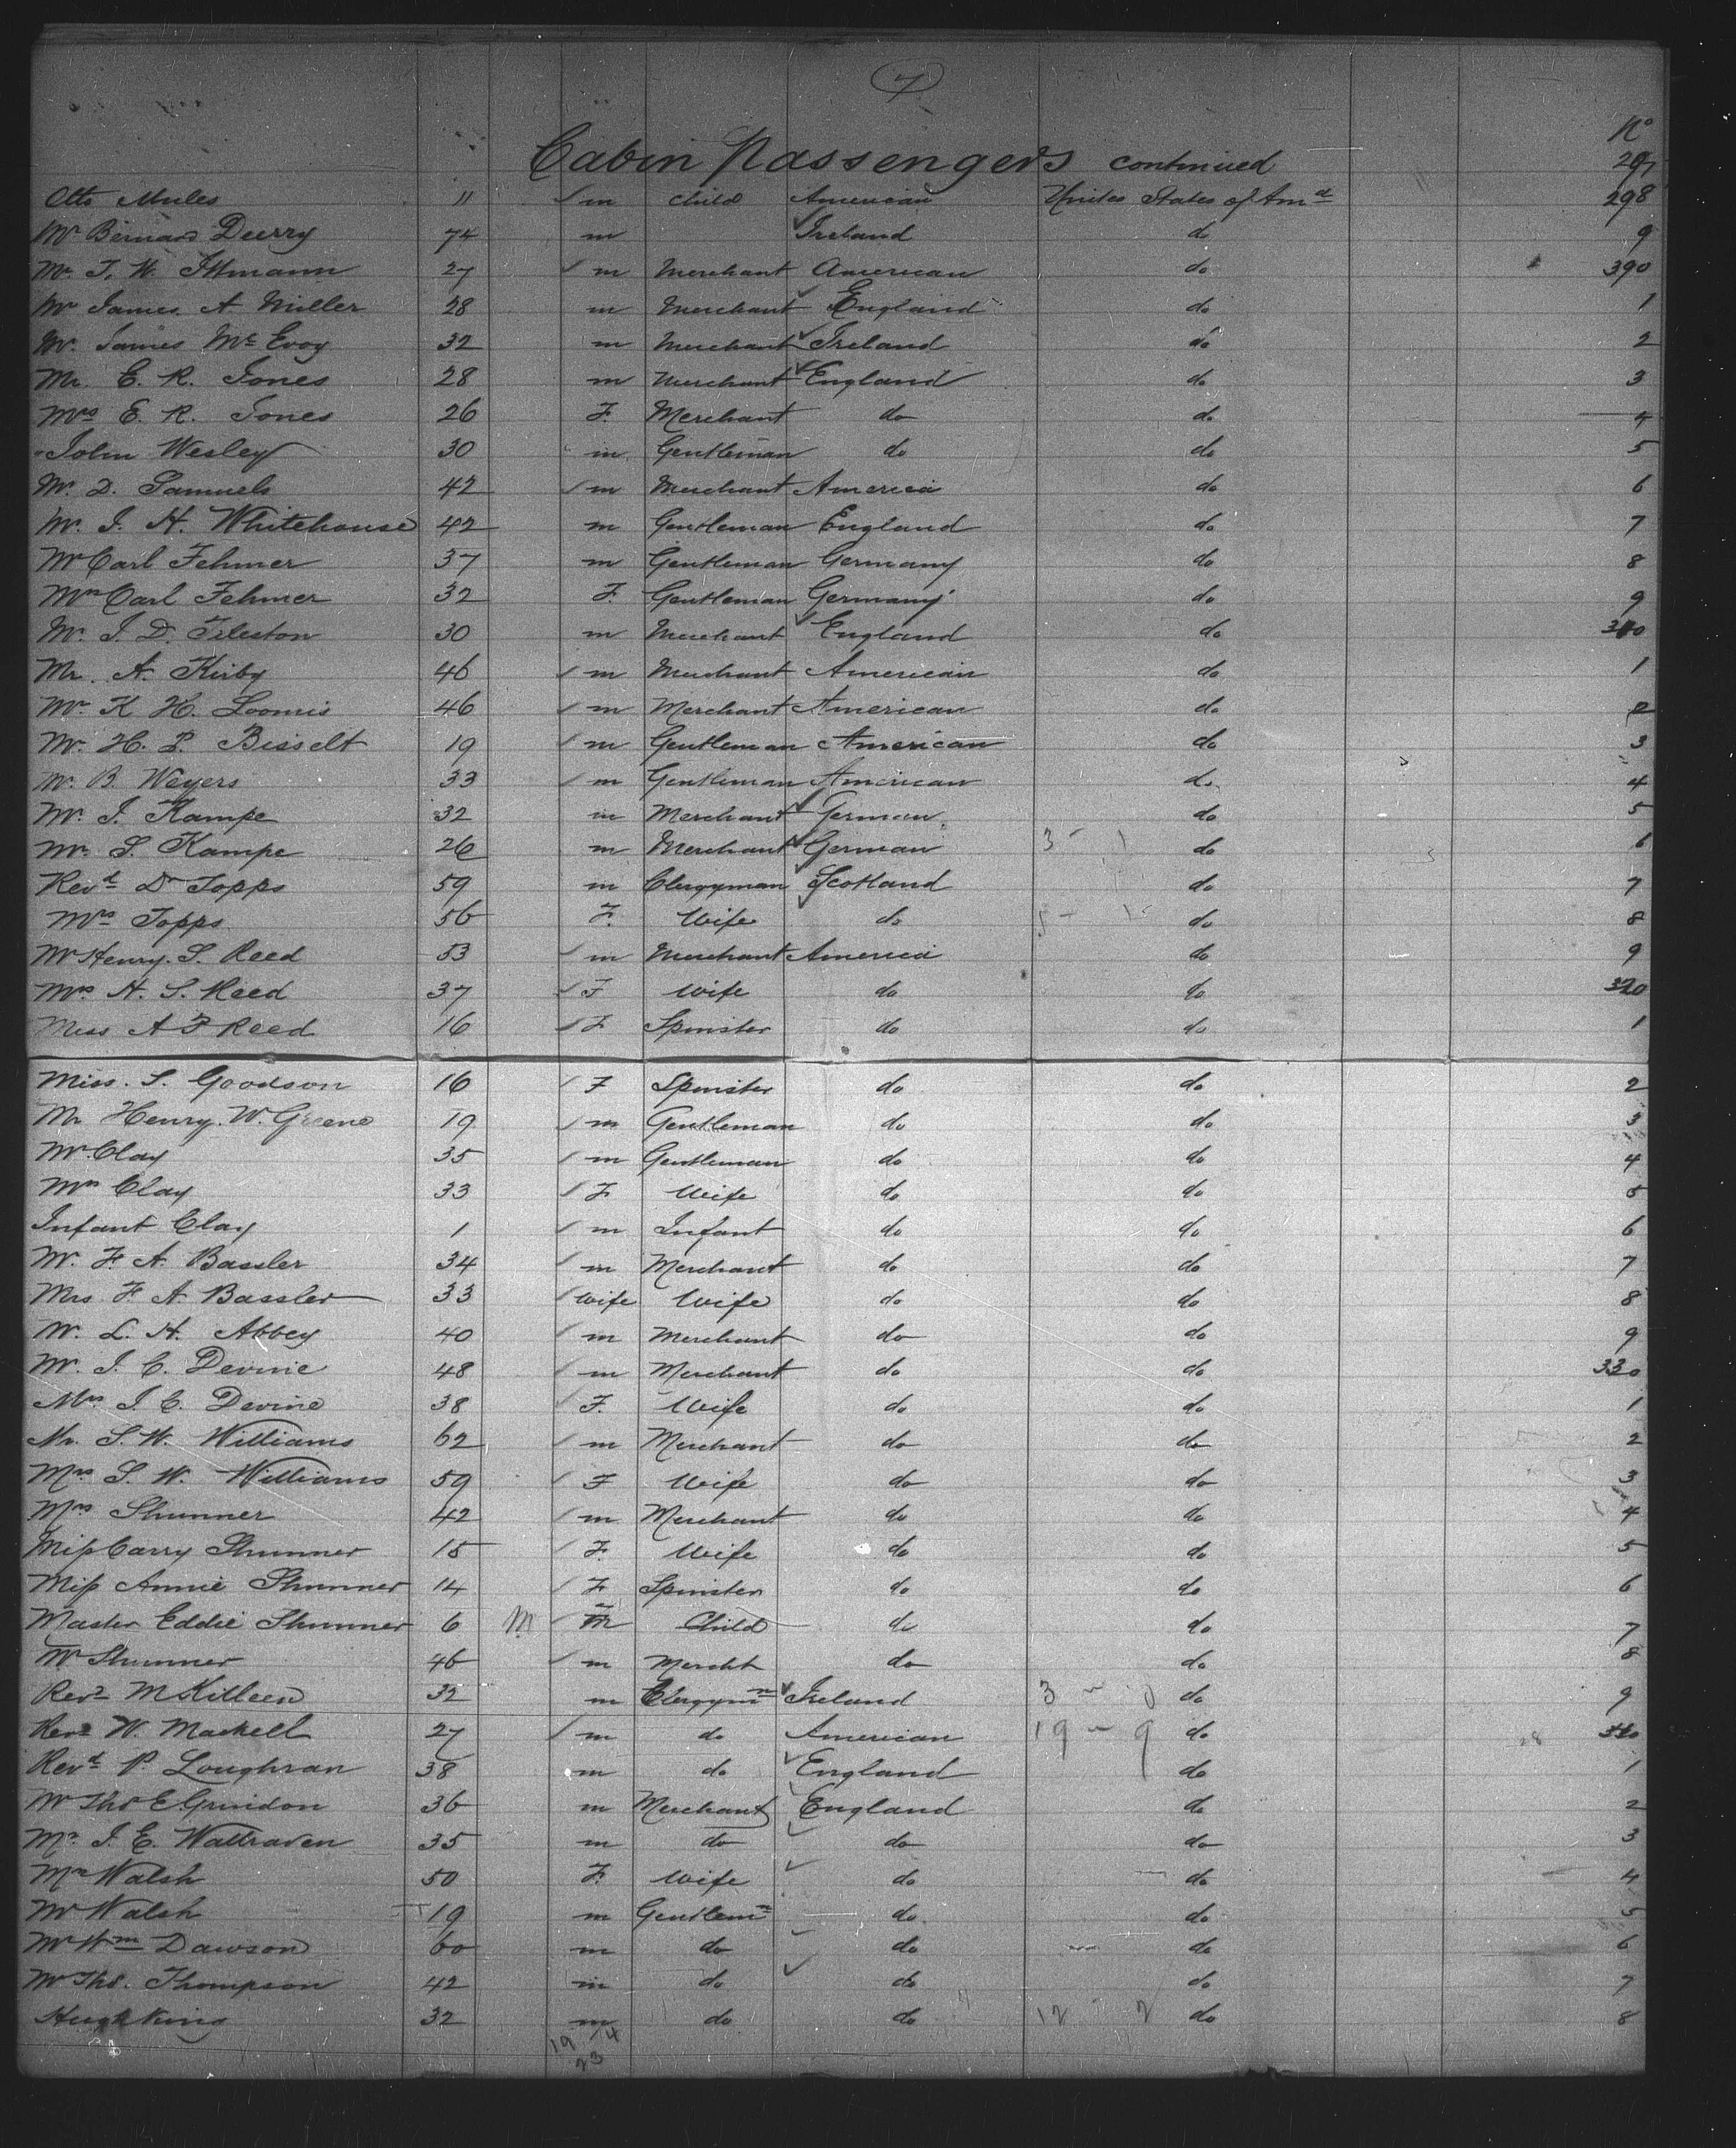 7
No
Cabin Passengers continued 297
Otto Mules 11 m child American United States of Am 298
Mr Bernard Deerry 74 m Ireland do 9
Mr. T. W. Ittmann 27 m Merchant American do 390
Mr James A Miller 28 m Merchant England do 1
Mr. James McEvoy 32 m Merchant Ireland do 2
Mr. E. R. Jones 28 m Merchant England do 3
Mrs E. R. Jones 26 F. Merchant do do 4
John Wesley 30 m Gentleman do do 5
Mr. D. Samuels 42 m Merchant America do 6
Mr. J. H. Whitehouse 42 m Gentleman England do 7
Mr Carl Fehmer 37 m Gentleman Germany do 8
Mrs Carl Fehmer 32 F. Gentleman Germany do 9
Mr. J. D. Fileston 30 m Merchant England do 310
Mr. A. Kirby 46 m Merchant American do 1
Mr. K H. Loomis 46 m Merchant American do 2
Mr. H. P. Bisselt 19 m Gentleman American do 3
Mr. B. Weyers 33 m Gentleman American do. 4
Mr. J. Kampe 32 m Merchant German do 5
Mr. S. Kampe 26 m Merchant German 3 - 1 do 6
Revd Dr Topps 59 m Clergyman Scotland do 7
Mrs Topps 56 F. Wife do do 8
Mr Henry. S. Reed 53 m Merchant America do 9
Mrs H. S. Reed 37 F Wife do do 320
Miss A F Reed 16 F Spinster do do 1
Miss. S. Goodson 16 F Spinster do do 2
Mr Henry. W. Greene 19 m Gentleman do do 3
Mr Clay 35 m Gentleman do do 4
Mrs Clay 33 F Wife do do 5
Infant Clay 1 m Infant do do 6
Mr. F. A. Bassler 34 m Merchant do do 7
Mrs F. A. Bassler 33 Wife Wife do do 8
Mr. L. H. Abbey 40 m Merchant do do 9
Mr. J. C. Devine 48 m Merchant do do 330
Mrs J. C. Devine 38 F. Wife do do 1
Mr. S. W. Williams 62 m Merchant do do 2
Mrs S. W. Williams 59 F Wife do do 3
Mrs Shunner 42 m Merchant do do 4
Miss Carry Shunner 15 F. Wife do do 5
Miss Annie Shunner 14 F Spinster do do 6
Master Eddie Shunner 6 M m Child do do 7
Mr Shunner 46 m Mercht do do 8
Revd McKilleen 32 m Clergymn Ireland 3 - 0 do 9
Revd W. Mackell 27 m do American 19 - 9 do 340
Revd P. Loughran 38 m do England do 1
Mr Thos E. Grindon 36 m Merchant England do 2
Mr. J. E. Waltraven 35 m do do do 3
Mrs Walsh 50 F. Wife do do 4
Mr Walsh 19 m Gentlemn do do 5
Mr Wm Dawson 60 m do do do 6
Mr Thos. Thompson 42 m do do do 7
Hugh King 32 m do do 12 - 2 do 8
19 / 4
23